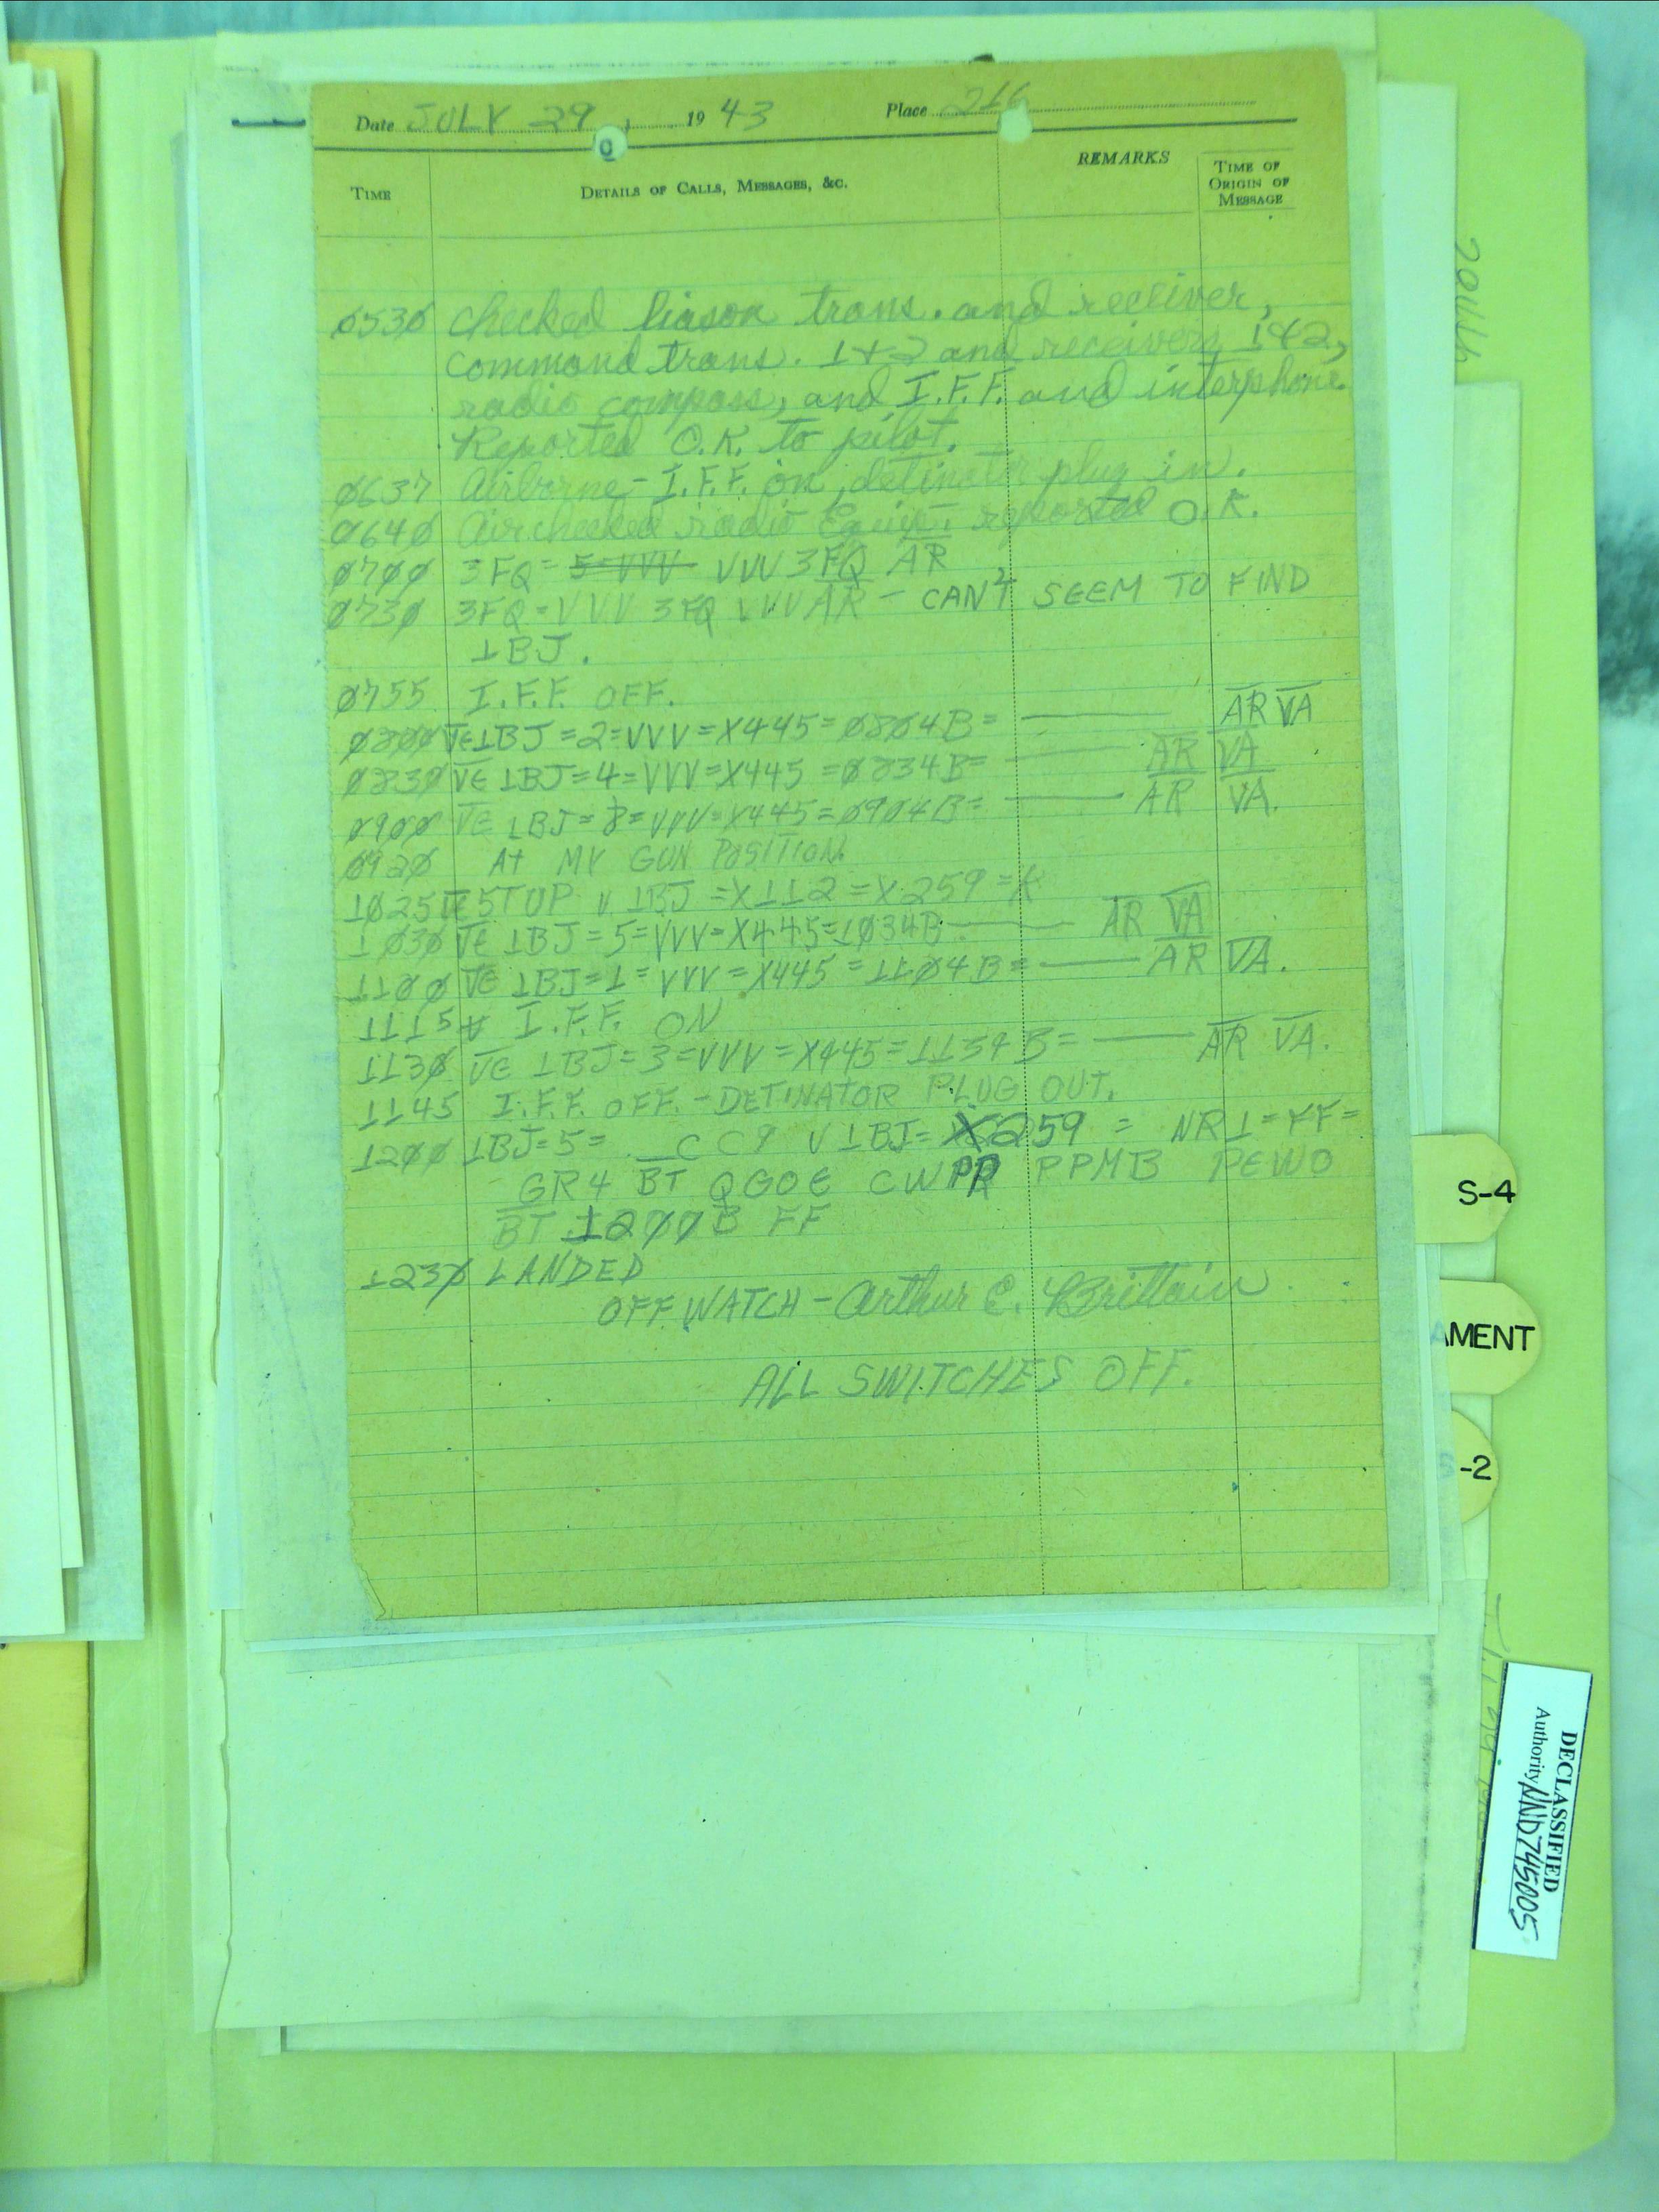 Date JULY 29, 1943 Place 216
TIME DETAILS OF CALLS, MESSAGES, &C. REMARKS TIME OF ORIGIN OF MESSAGE
Ø53Ø checked liason trans. and reciever,
command trans. 1+2 and receivers 1&2,
radio compass, and I.F.F. and interphone.
Reported O.K. to pilot.
Ø637 Airborne - I.F.F. on, detinator plug in.
Ø64Ø Airchecked radio Equipt. reported O.K.
Ø7ØØ 3FQ = 5=VVV VVV 3FQ AR
Ø73Ø 3FQ = VVV 3FQ VVV AR - CAN'T SEEM TO FIND
1BJ.
Ø755 I.F.F. OFF.
Ø8ØØ VE 1BJ = 2 = VVV = X445 = Ø8Ø4B = —— AR VA
Ø83Ø VE 1BJ = 4 = VVV = X445 = Ø834B = —— AR VA
Ø9ØØ VE 1BJ = 8 = VVV = X445 = Ø9Ø4B = —— AR VA.
Ø92Ø At MY GUN POSITION.
1Ø25 VE 5TUP V 1BJ = X112 = X259 = K
1Ø3Ø VE 1BJ = 5 = VVV = X445 = 1Ø34B —— AR VA
11ØØ VE 1BJ = 1 = VVV = X445 = 11Ø4B = —— AR VA.
1115 I.F.F. ON
113Ø VE 1BJ = 3 = VVV = X445 = 1134B = —— AR VA.
1145 I.F.F. OFF. - DETINATOR PLUG OUT.
12ØØ 1BJ = 5 = CC9 V 1BJ = X259 = NR1 = FF =
GR4 BT QGOE CWPP PPMB PEWO
BT 12ØØB FF
123Ø LANDED
OFF WATCH - Arthur E. Brittain
ALL SWITCHES OFF.
S-4
AMENT
S-2
DECLASSIFIED
Authority NND745005